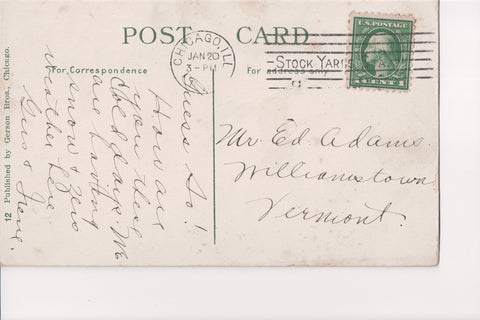 POST CARD
For Correspondence
For address only
CHICAGO, ILL
JAN 20
3-PM
STOCK YARDS
U.S. POSTAGE
1 CENT 1
Guess So!
How are
you these
cold days. We
are having
snow & zero
weather here
Gus & Irene.
Mr. Ed Adams.
Williamstown
Vermont.
12 Published by Gerson Bros., Chicago.